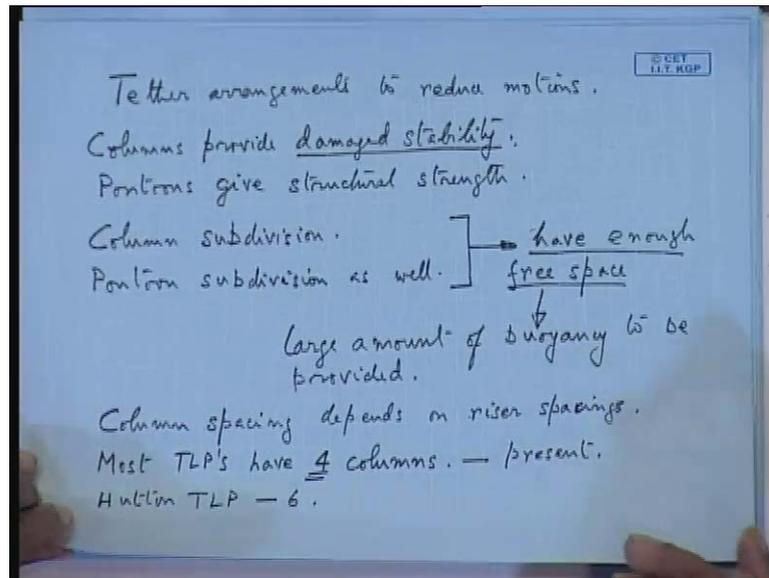 © CET
I.I.T. KGP
Tether arrangements to reduce motions.
Columns provide damaged stability.
Pontoons give structural strength.
Column subdivision.
Pontoon subdivision as well.
have enough
free space
Large amount of buoyancy to be
provided.
Column spacing depends on riser spacings.
Most TLP's have 4 columns. — present.
Hutton TLP — 6.